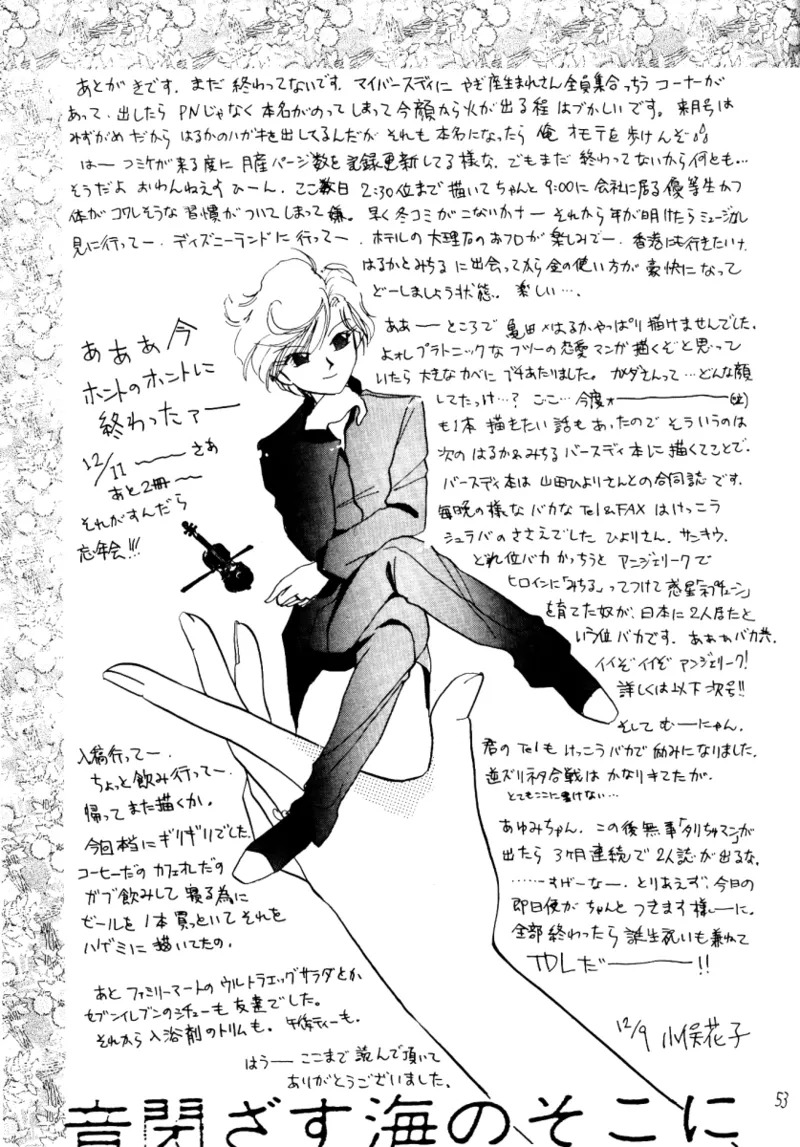 あとがきです。まだ終わってないです。マイバースディにやぎ座生まれさん全員集合っちうコーナーが
あって、出したらPNじゃなく本名がのってしまって今顔から火が出る程はづかしいです。来月号は
みずがめだからはるかのハガキを出してるんだがそれも本名になったら俺オモテを歩けんぞ
はーコミケが来る度に月産ページ数を記録更新してる様な。でもまだ終わってないから何とも…
そうだよおわんねえすひーん。ここ数日2:30位まで描いてちゃんと9:00に会社に居る優等生かつ
体がコワレそうな習慣がついてしまって嫌。早く冬コミがこないかナーそれから年が明けたらミュージカル
見に行ってー、ディズニーランドに行ってー、ホテルの大理石のおフロが楽しみでー、香港にも行きたいけ、
はるかとみちるに出会ってから金の使い方が豪快になって
どーしましょう状態。楽しい…。
ああーところで亀田×はるかやっぱり描けませんでした。
よォしプラトニックなフツーの恋愛マンガ描くぞと思って
いたら大きなカベにブチあたりました。カメダさんって…どんな顔
してたっけ…?ここ…今度ォ――――(嘘)
も1本描きたい話もあったのでそういうのは
次のはるか&みちるバースディ本に描くってことで。
バースディ本は山田ひよりさんとの合同誌です。
毎晩の様なバカなTel&FAXはけっこう
シュラバのささえでした ひよりさん、サンキウ。
どれ位バカかっちうとアンジェリークで
ヒロインに「みちる」ってつけて惑星「ネプチューン」
を育てた奴が、日本に2人居たと
いう位バカです。あぁぁバカ共。
イイぞイイぞアンジェリーク!
詳しくは以下次号!!
そしてむーにゃん。
君のTelもけっこうバカで励みになりました。
逆ズリネタ合戦はかなりキてたが。
とてもここに書けない…
あゆみちゃん。この後無事「タリちゃマン」が
出たら3ケ月連続で2人誌が出るな。
……すげーなー。とりあえず、今日の
即日便がちゃんとつきます様ーに。
全部終わったら誕生祝いも兼ねて
TDLだ―――!!
12/9 小俣花子
あぁぁ今
ホントのホントに
終わったァー
12/11――さあ
あと2冊―
それがすんだら
忘年会!!!
入稿行ってー、
ちょっと飲み行ってー、
帰ってまた描くか。
今回本当にギリギリでした。
コーヒーだのカフェオレだの
ガブ飲みして寝る為に
ビールを1本買っといてそれを
ハゲミに描いてたの。
あとファミリーマートのウルトラエッグサラダとか、
セブンイレブンのシチューも友達でした。
それから入浴剤のトリムも。午後ティーも。
はうーここまで読んで頂いて
ありがとうございました。
53
音閉ざす海のそこに